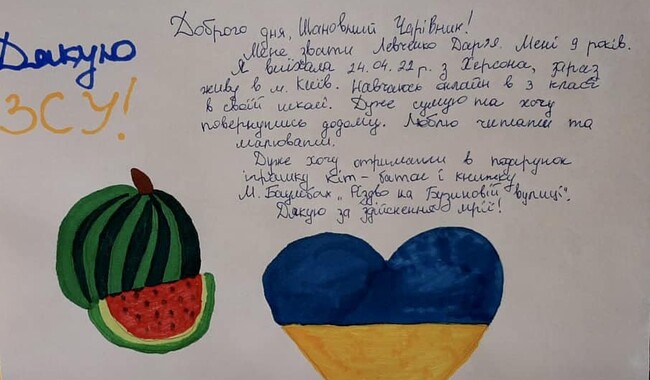 Дякую
ЗСУ!
Доброго дня, Шановний Чарівник!
Мене звати Левченко Дар'я. Мені 9 років.
Я виїхала 24.04.22 р. з Херсона, зараз
живу в м. Київ. Навчаюсь онлайн в 3 класі
в своїй школі. Дуже сумую та хочу
повернутись додому. Люблю читати та
малювати.
Дуже хочу отримати в подарунок
іграшку кіт-батон і книжку
М. Баумбах „Різдво на Бузиновій вулиці".
Дякую за здійснення мрії!